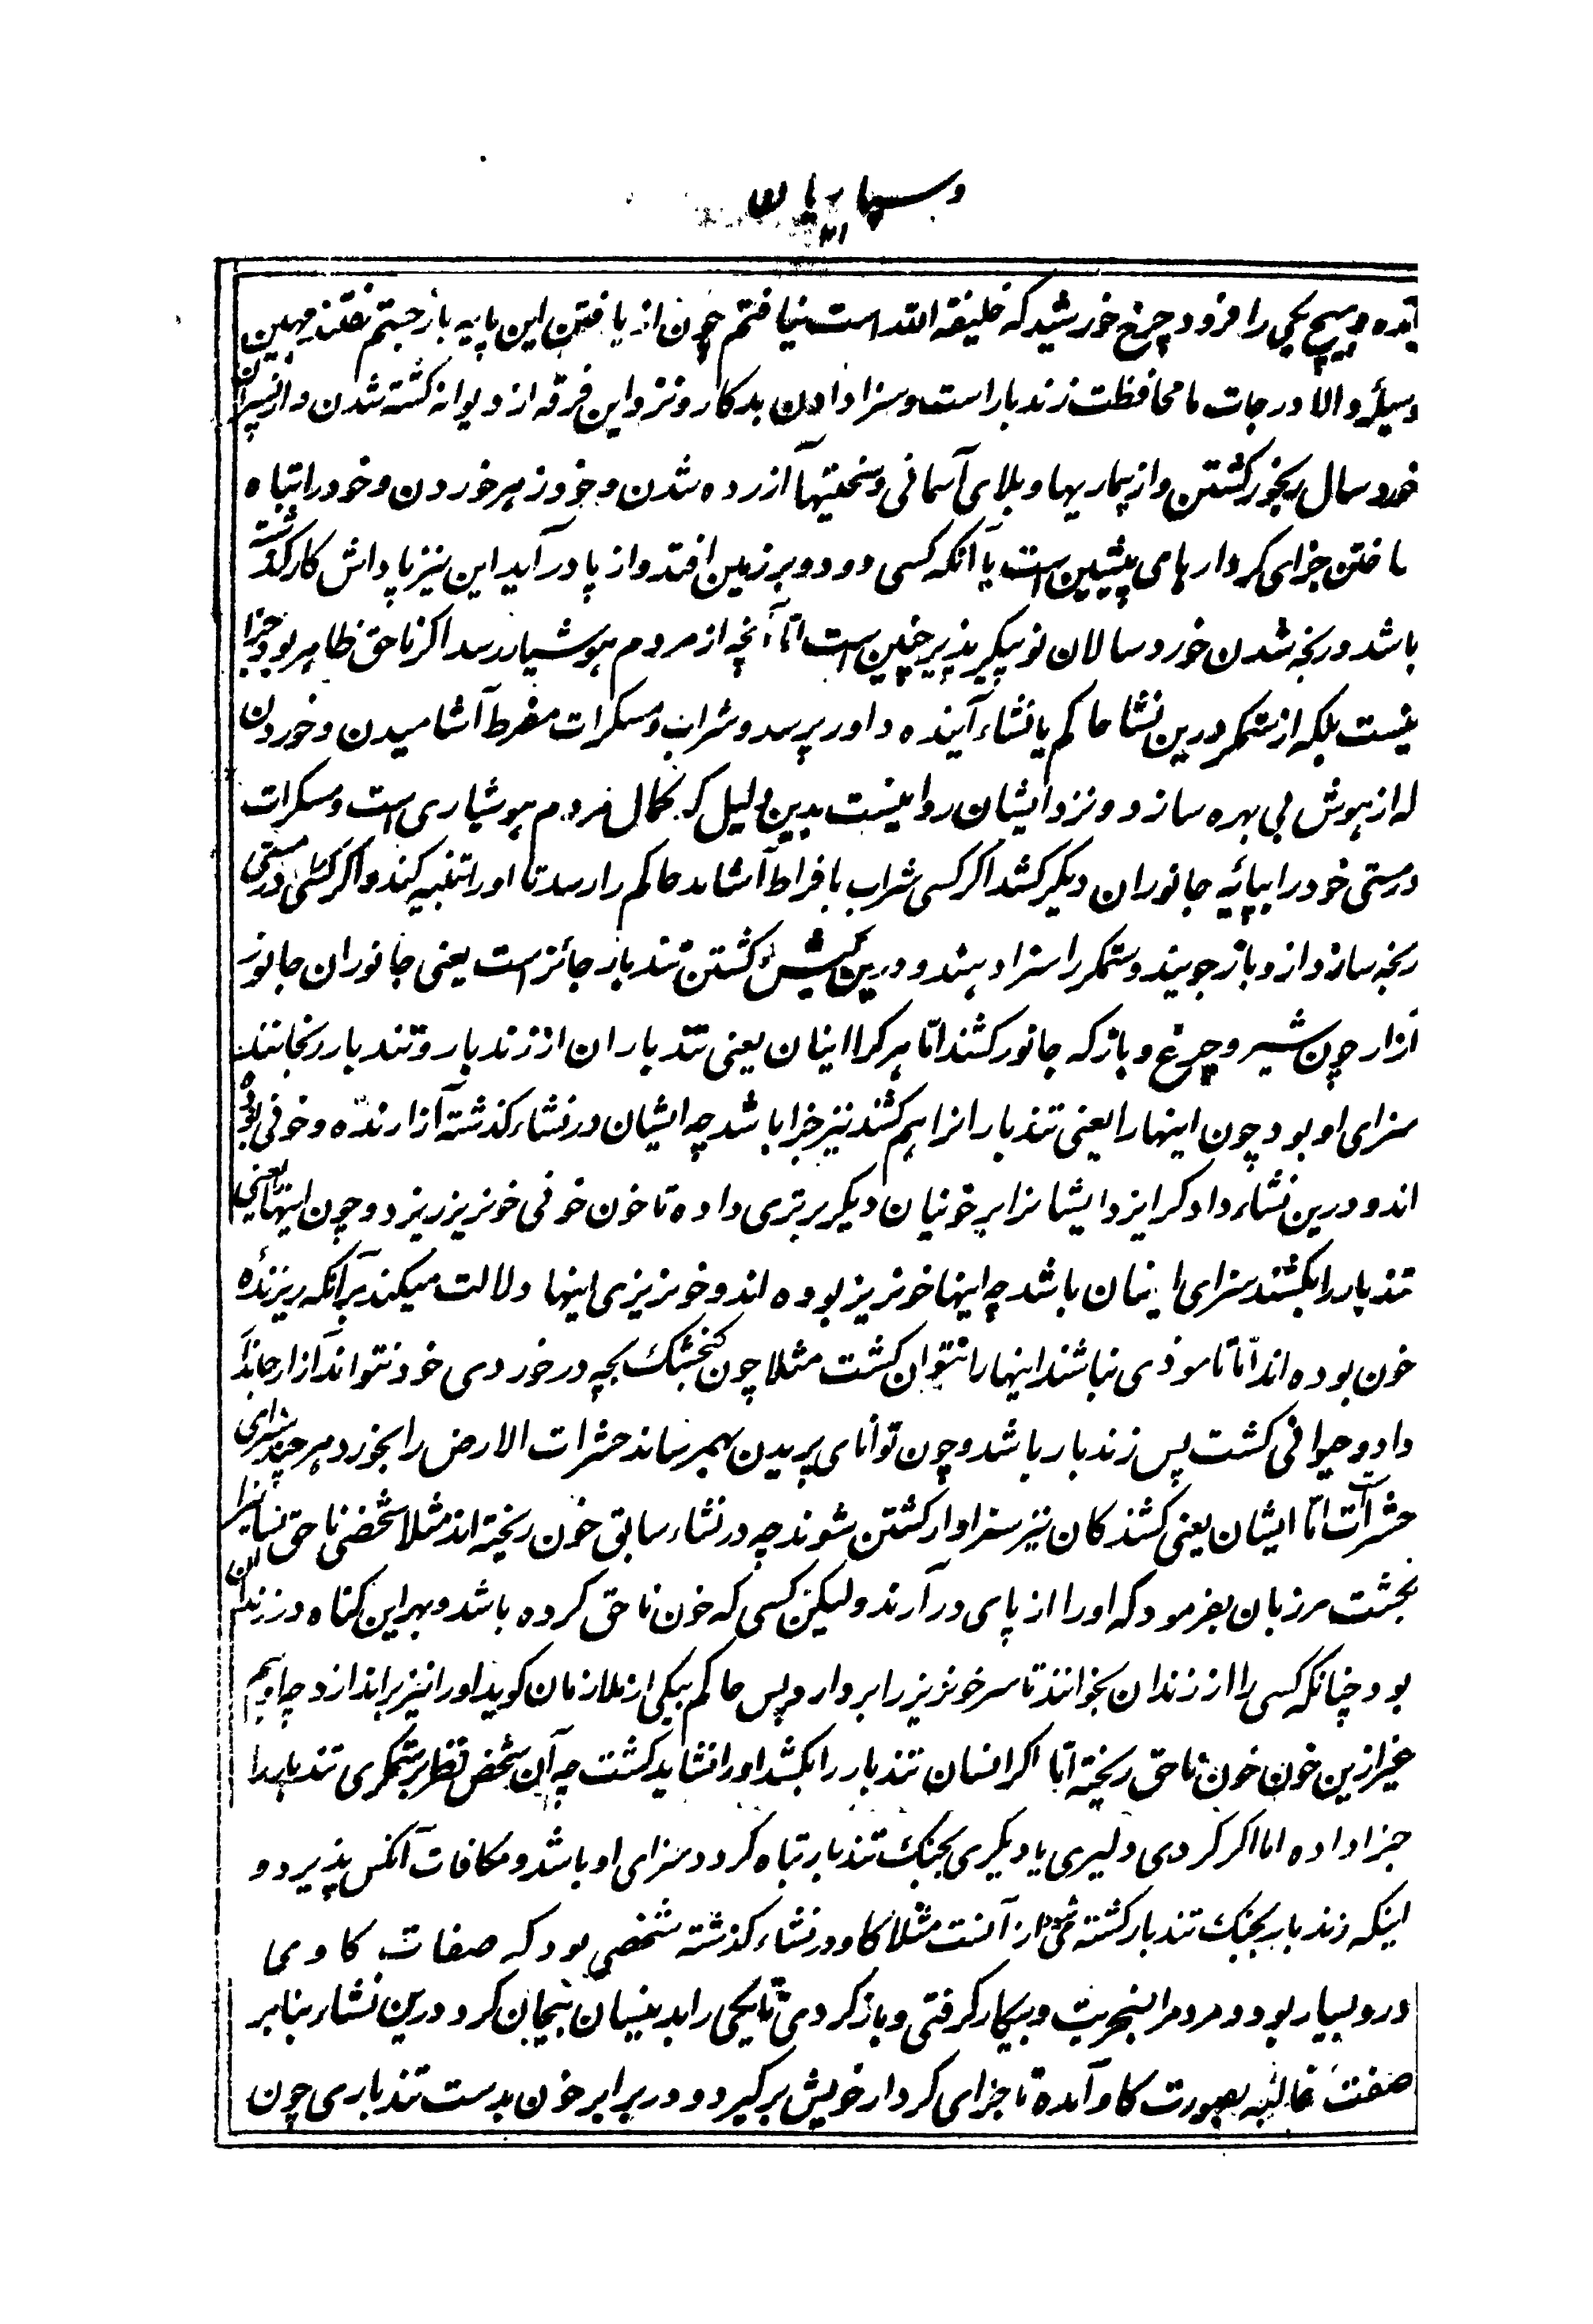 و سپاریان
۳۱
آمده و هیچ یکی را فزود چرخ خورشید که خلیفه الله است نیافتم چون از یافتن این پایه باز جستم گفتند مهین
وسیلهٔ والا درجات ما محافظت زندبار است و سزا دادن بدکار و نزد این فرقه از دیوانه کشته شدن و از پسران
خورد سال رنجور گشتن و از بیماریها و بلای آسمانی و سختیها آزرده شدن و خود زهر خوردن و خود را تباه
ساختن جزای کردارهای پیشین است یا آنکه کسی دود و بر زمین افتد و از پا در آید این نیز پاداش کار گذشته
باشد و رنجه شدن خورد سالان نو پیکر پذیر چنین است امّا آنچه از مردم هوشیار رسد اگر ناحق ظاهر بود جزا
نیست بلکه از ستمگر درین نشا حاکم یا نشاء آینده داور پرسد و شراب و مسکرات مفرط آشامیدن و خوردن
که از هوش بی بهره سازد و نزد ایشان روا نیست بدین دلیل که کمال مردم هوشیاری است و مسکرات
در مستی خود را بپائیه جانوران دیگر کشد اگر کسی شراب بافراط آشامد حاکم را رسد تا او را تنبیه کند و اگر کسی در مستی
رنجه سازد از و باز جویند و ستمگر را سزا دهند و درین کیش کشتن تندبار جائز است یعنی جانوران جانور
آزار چون شیر و چرغ و باز که جانور کشند امّا هر کرا اینان یعنی تندباران از زندبار و تندبار رنجانند
سزای او بود چون اینها را یعنی تندبارانرا هم کشند نیز جزا باشد چه ایشان در نشاء گذشته آزارنده و خونی بوده
اند و درین نشاء دادگر ایزد ایشانرا بر خونیان دیگر برتری داده تا خون خونی خونریز ریزد و چون اینها یعنی
تندبار را بکشند سزای اینان باشد چه اینها خونریز بوده اند و خونریزی اینها دلالت میکند بر آنکه ریزنده
خون بوده اند امّا تا موذی نباشند اینها را نتوان کشت مثلا چون گنجشک بچه در خوردی خود نتواند آزار جاندار
داد و حیوانی کشت پس زندبار باشد و چون توانای پریدن بهمرساند حشرات الارض را بخورد هرچند سزای
حشرات است امّا ایشان یعنی کشندگان نیز سزاوار کشتن شوند چه در نشاء سابق خون ریخته اند مثلا شخصی ناحق انسانیرا
بکشت مرزبان بفرمود که او را از پای در آرند ولیکن کسی که خون ناحق کرده باشد و بهر این گناه در زندان
بود چنانکه کسی را از زندان بخوانند تا سر خونریز را بردارد پس حاکم بیکی از ملازمان گوید او را نیز براندازد چه او هم
غیر ازین خون خون ناحق ریخته امّا اگر انسان تندبار را بکشد او را نشاید کشت چه آن شخص نظر بر ستمگری تندبار را
جزا داده اما اگر گردی دلیری یا دیگری بجنگ تندبار تباه گردد سزای او باشد و مکافات آنکس پذیرد و
اینکه زندبار بجنگ تندبار کشته می شود از آنست مثلا گاو در نشاء گذشته شخصی بود که صفات گاوی
در و بسیار بود و مردم را بسخریت و بیکار گرفتی و باز کردی تا یکی را بدینسان بیجان کرد درین نشاء بنابر
صفت غالبه بصورت گاو آمده تا جزای کردار خویش برگیرد و در برابر خون بدست تندباری چون